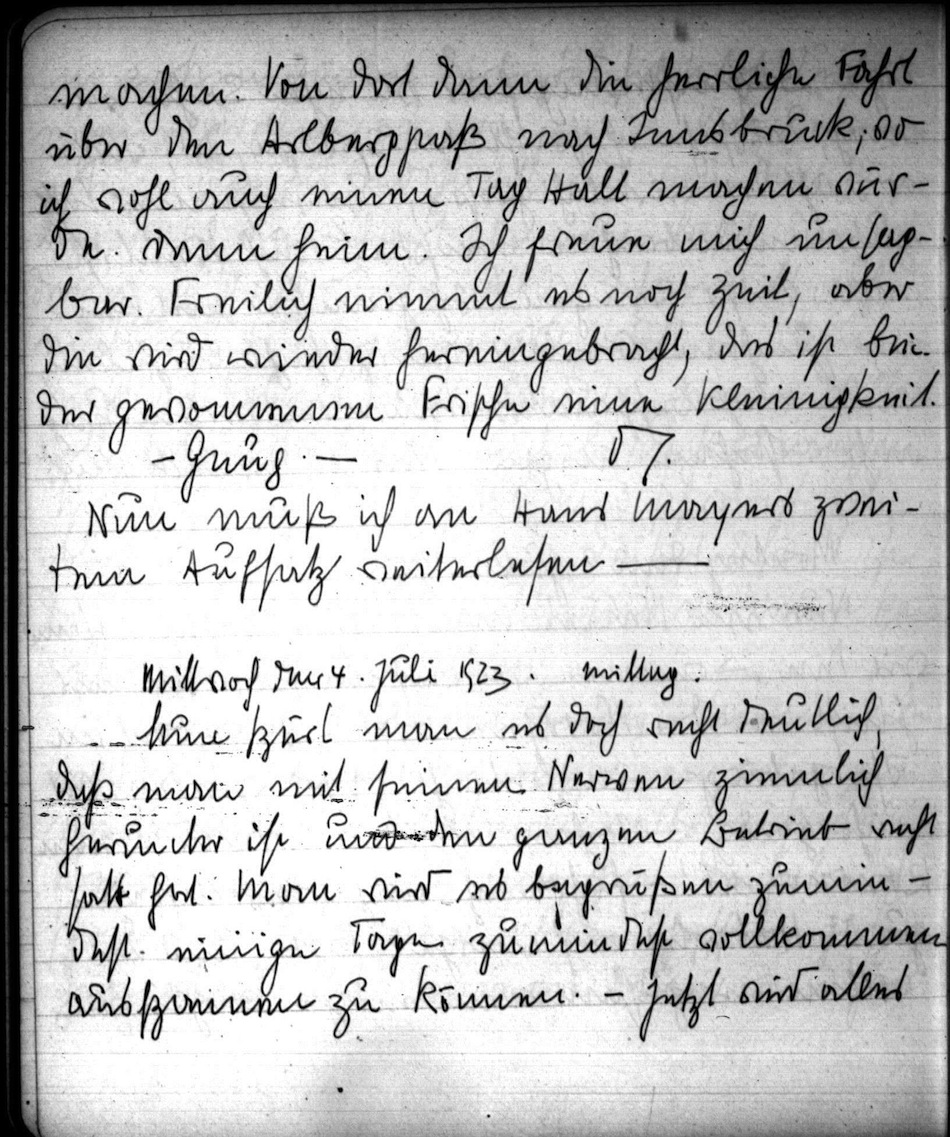 machen. Von dort dann die herrliche Fahrt
über den Arlbergpaß nach Innsbruck, wo
ich wohl auch einen Tag Halt machen wür-
de. dann heim. Ich freue mich unsag-
bar. Freilich nimmt es noch Zeit, aber
die wird wieder hereingebracht, das ist bei
der gewonnenen Frische eine Kleinigkeit.
– Genug. —
Nun muß ich an Hans Mayers zwei-
tem Aufsatz weiterlesen ——
Mittwoch den 4. Juli 1923. mittag.
Nun spürt man es doch recht deutlich,
daß man mit seinen Nerven ziemlich
herunter ist und den ganzen Betrieb recht
satt hat. Man wird es begrüßen zumin-
dest. einige Tage zumindest vollkommen
ausspannen zu können. – Jetzt wird alles